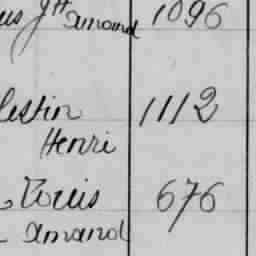 amand 1096
lestin 1112
Henri
Louis 676
amand